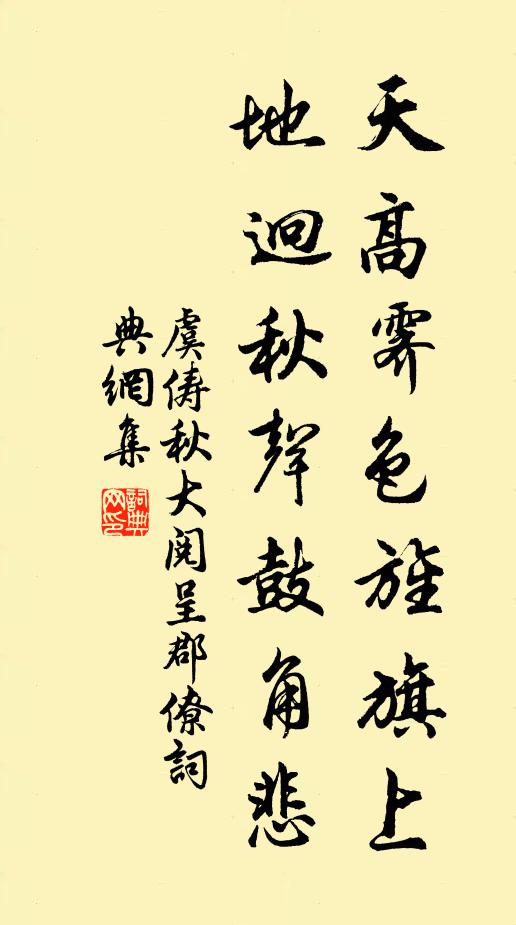 天高霽色旌旗上
地迥秋聲鼓角悲
虞儔秋大閱呈郡僚詞
典網集
詞典網印